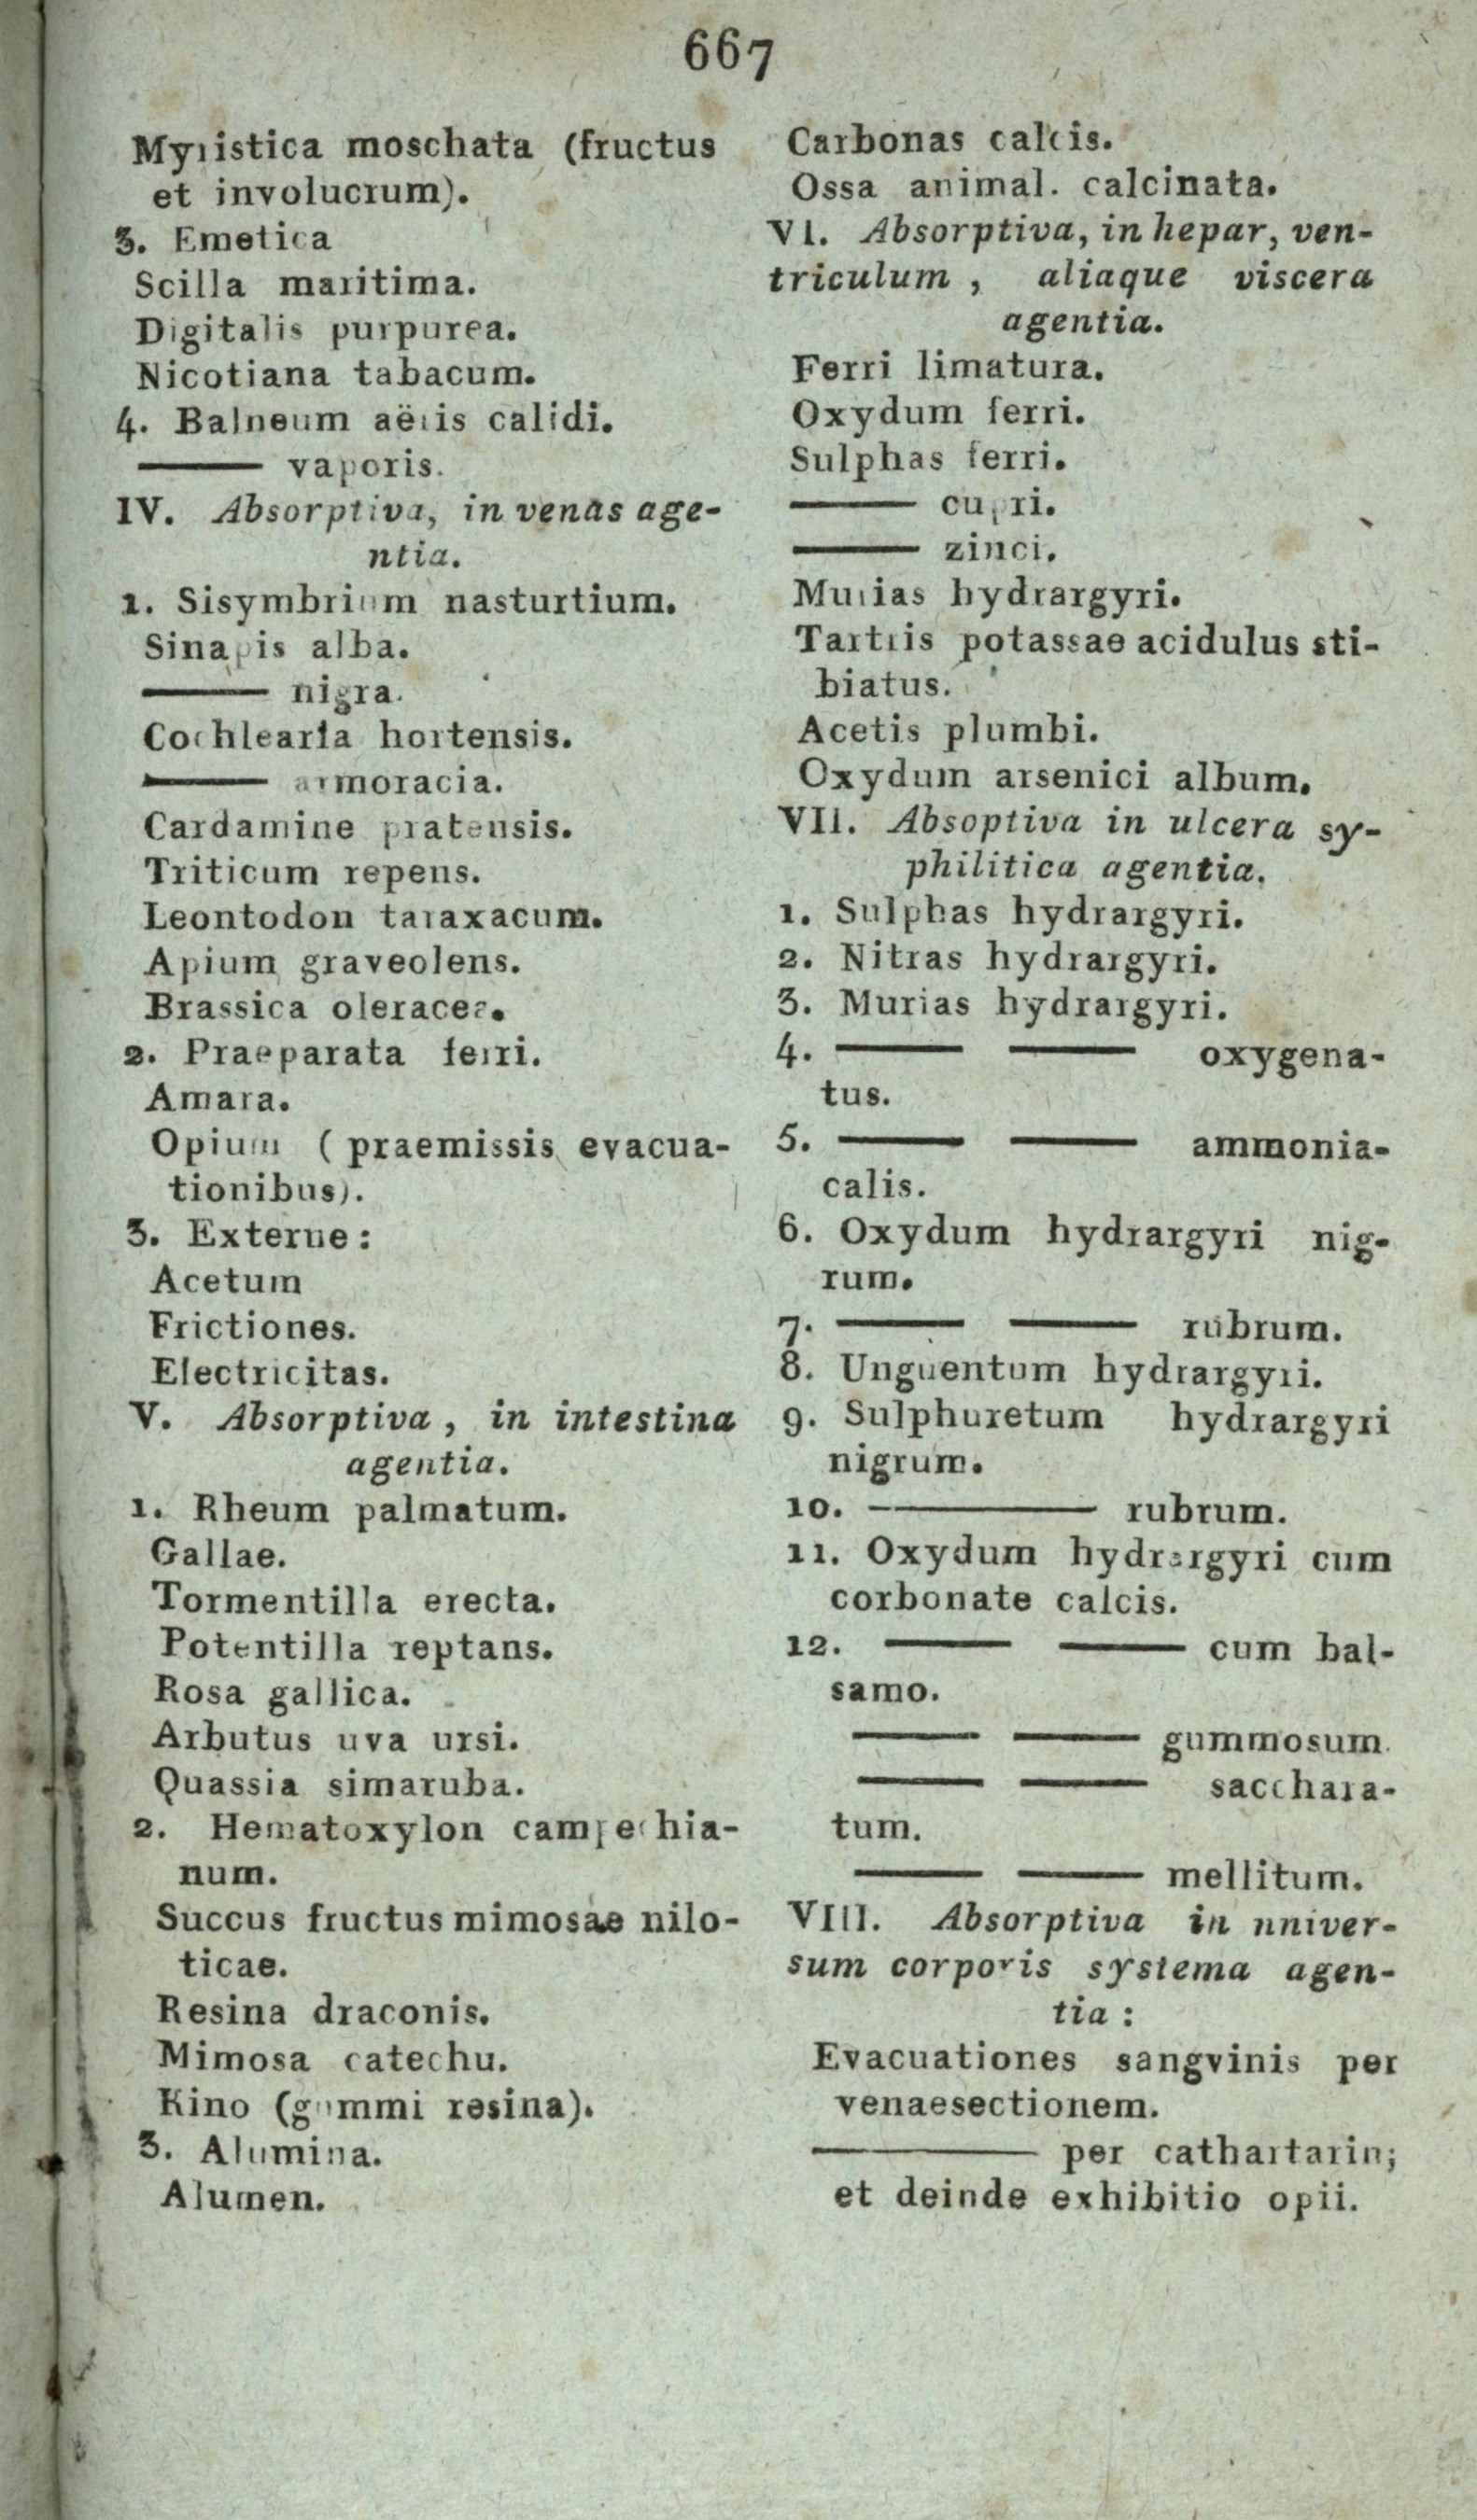 667
Myristica moschata (fructus
et involucrum).
3. Emetica
Scilla maritima.
Digitalis purpurea.
Nicotiana tabacum.
4. Balneum aëris calidi.
——— vaporis.
IV. Absorptiva, in venas age-
ntia.
1. Sisymbrium nasturtium.
Sinapis alba.
——— nigra.
Cochlearia hortensis.
——— armoracia.
Cardamine pratensis.
Triticum repens.
Leontodon taraxacum.
Apium graveolens.
Brassica oleracea.
2. Praeparata ferri.
Amara.
Opium ( praemissis evacua-
tionibus).
3. Externe :
Acetum
Frictiones.
Electricitas.
V. Absorptiva , in intestina
agentia.
1. Rheum palmatum.
Gallae.
Tormentilla erecta.
Potentilla reptans.
Rosa gallica.
Arbutus uva ursi.
Quassia simaruba.
2. Hematoxylon campechia-
num.
Succus fructus mimosae nilo-
ticae.
Resina draconis.
Mimosa catechu.
Kino (gummi resina).
3. Alumina.
Alumen.
Carbonas calcis.
Ossa animal. calcinata.
VI. Absorptiva, in hepar, ven-
triculum , aliaque viscera
agentia.
Ferri limatura.
Oxydum ferri.
Sulphas ferri.
——— cupri.
——— zinci.
Murias hydrargyri.
Tartris potassae acidulus sti-
biatus.
Acetis plumbi.
Oxydum arsenici album.
VII. Absoptiva in ulcera sy-
philitica agentia.
1. Sulphas hydrargyri.
2. Nitras hydrargyri.
3. Murias hydrargyri.
4. ——— ——— oxygena-
tus.
5. ——— ——— ammonia-
calis.
6. Oxydum hydrargyri nig-
rum.
7. ——— ——— rubrum.
8. Unguentum hydrargyri.
9. Sulphuretum hydrargyri
nigrum.
10. —————— rubrum.
11. Oxydum hydrargyri cum
corbonate calcis.
12. ——— ——— cum bal-
samo.
——— ——— gummosum.
——— ——— sacchara-
tum.
——— ——— mellitum.
VIII. Absorptiva in univer-
sum corporis systema agen-
tia :
Evacuationes sangvinis per
venaesectionem.
—————— per cathartarin;
et deinde exhibitio opii.